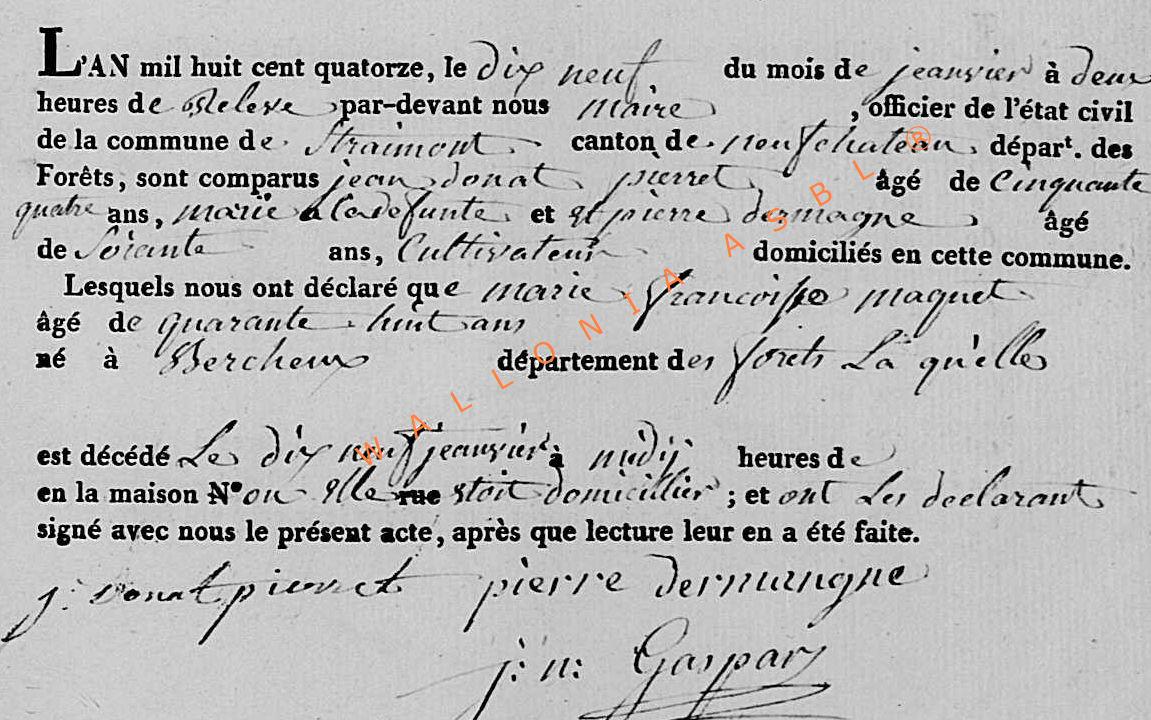 L'AN mil huit cent quatorze, le dix neuf du mois de jeanvier à deux
heures de Releve par-devant nous maire, officier de l'état civil
de la commune de Straimont canton de neufchateau, départ. des
Forêts, sont comparus jean donat pierret, âgé de Cinquante
quatre ans, marie a la defunte, et et pierre dermagne, âgé
de Soiante ans, Cultivateur domiciliés en cette commune.
Lesquels nous ont déclaré que marie francoisse maquet
âgé de quarante huit ans
né à Bercheux département des forets La qu'elle
est décédé Le dix neuf jeanvier à midij heures de
en la maison N° ou elle rue etoit domicillier; et ont Les declarant
signé avec nous le présent acte, après que lecture leur en a été faite.
j: Donat pierret pierre dermangne
j: n: Gaspar
WALLONIA ASBL®